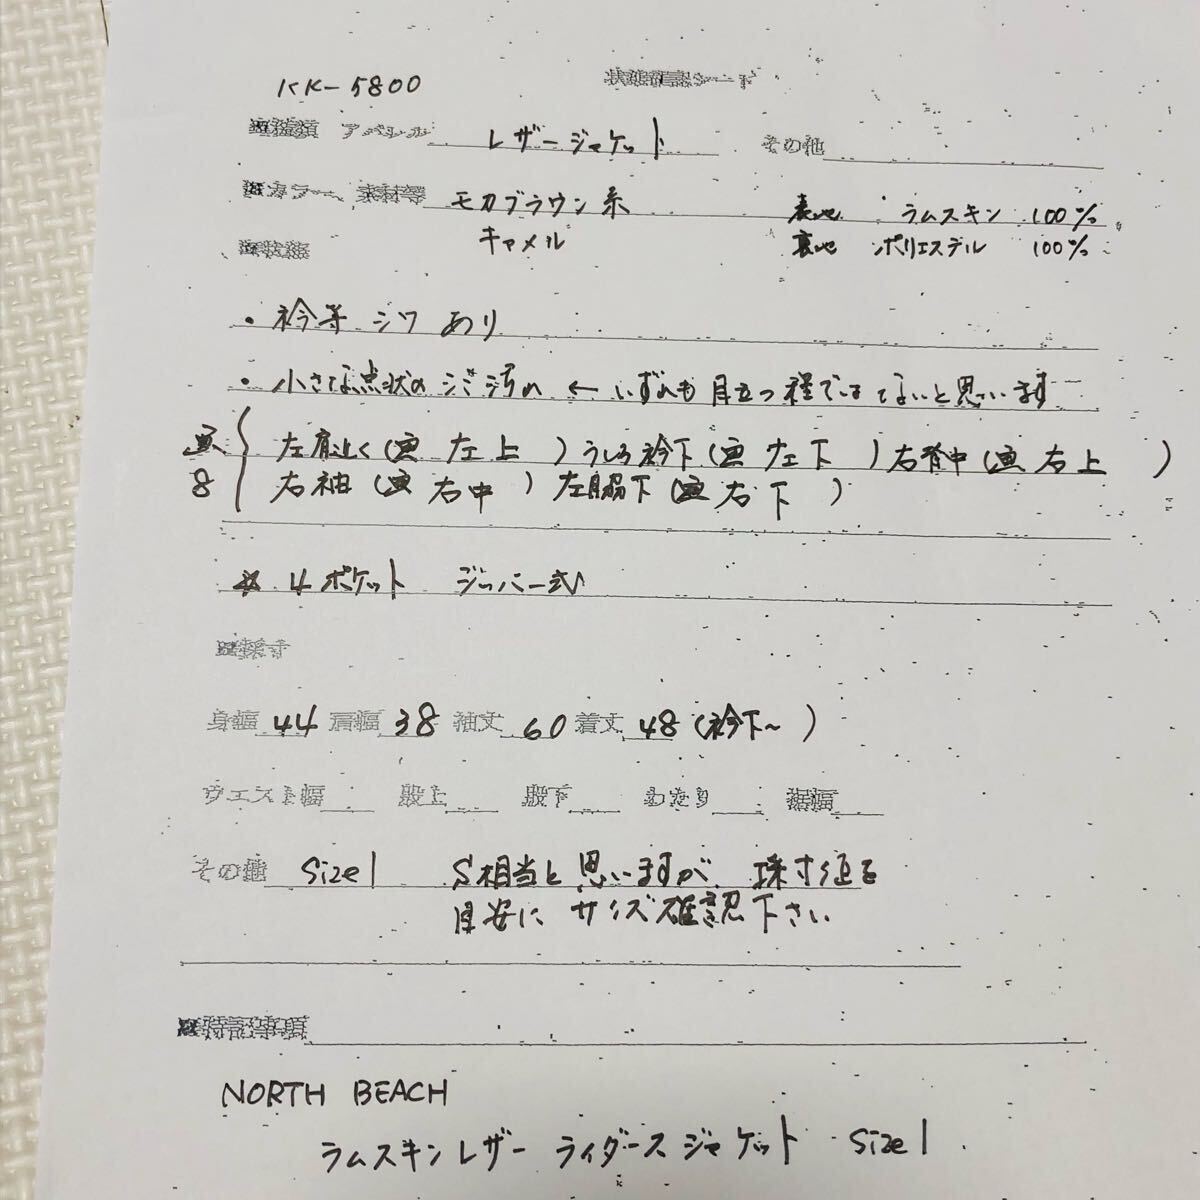 KK-5800
状態確認シート
■種類 アパレル レザージャケット その他
■カラー、素材等 モカブラウン系 表地 ラムスキン 100%
キャメル 裏地 ポリエステル 100%
■状態
・衿等 シワ あり
・小さな点状のシミ汚れ ← いずれも目立つ程ではないと思います
画8 { 左肩近く(画 左上 ) うしろ衿下(画 左下 ) 右背中(画 右上 )
右袖 (画 右中 ) 左脇下(画 右下 )
☆ 4ポケット ジッパー式
■採寸
身幅 44 肩幅 38 袖丈 60 着丈 48 (衿下~ )
ウエスト幅 股上 股下 わたり 裾幅
その他 size 1 S相当と思いますが、採寸値を
目安に サイズ確認下さい
■特記事項
NORTH BEACH
ラムスキンレザー ライダースジャケット size 1